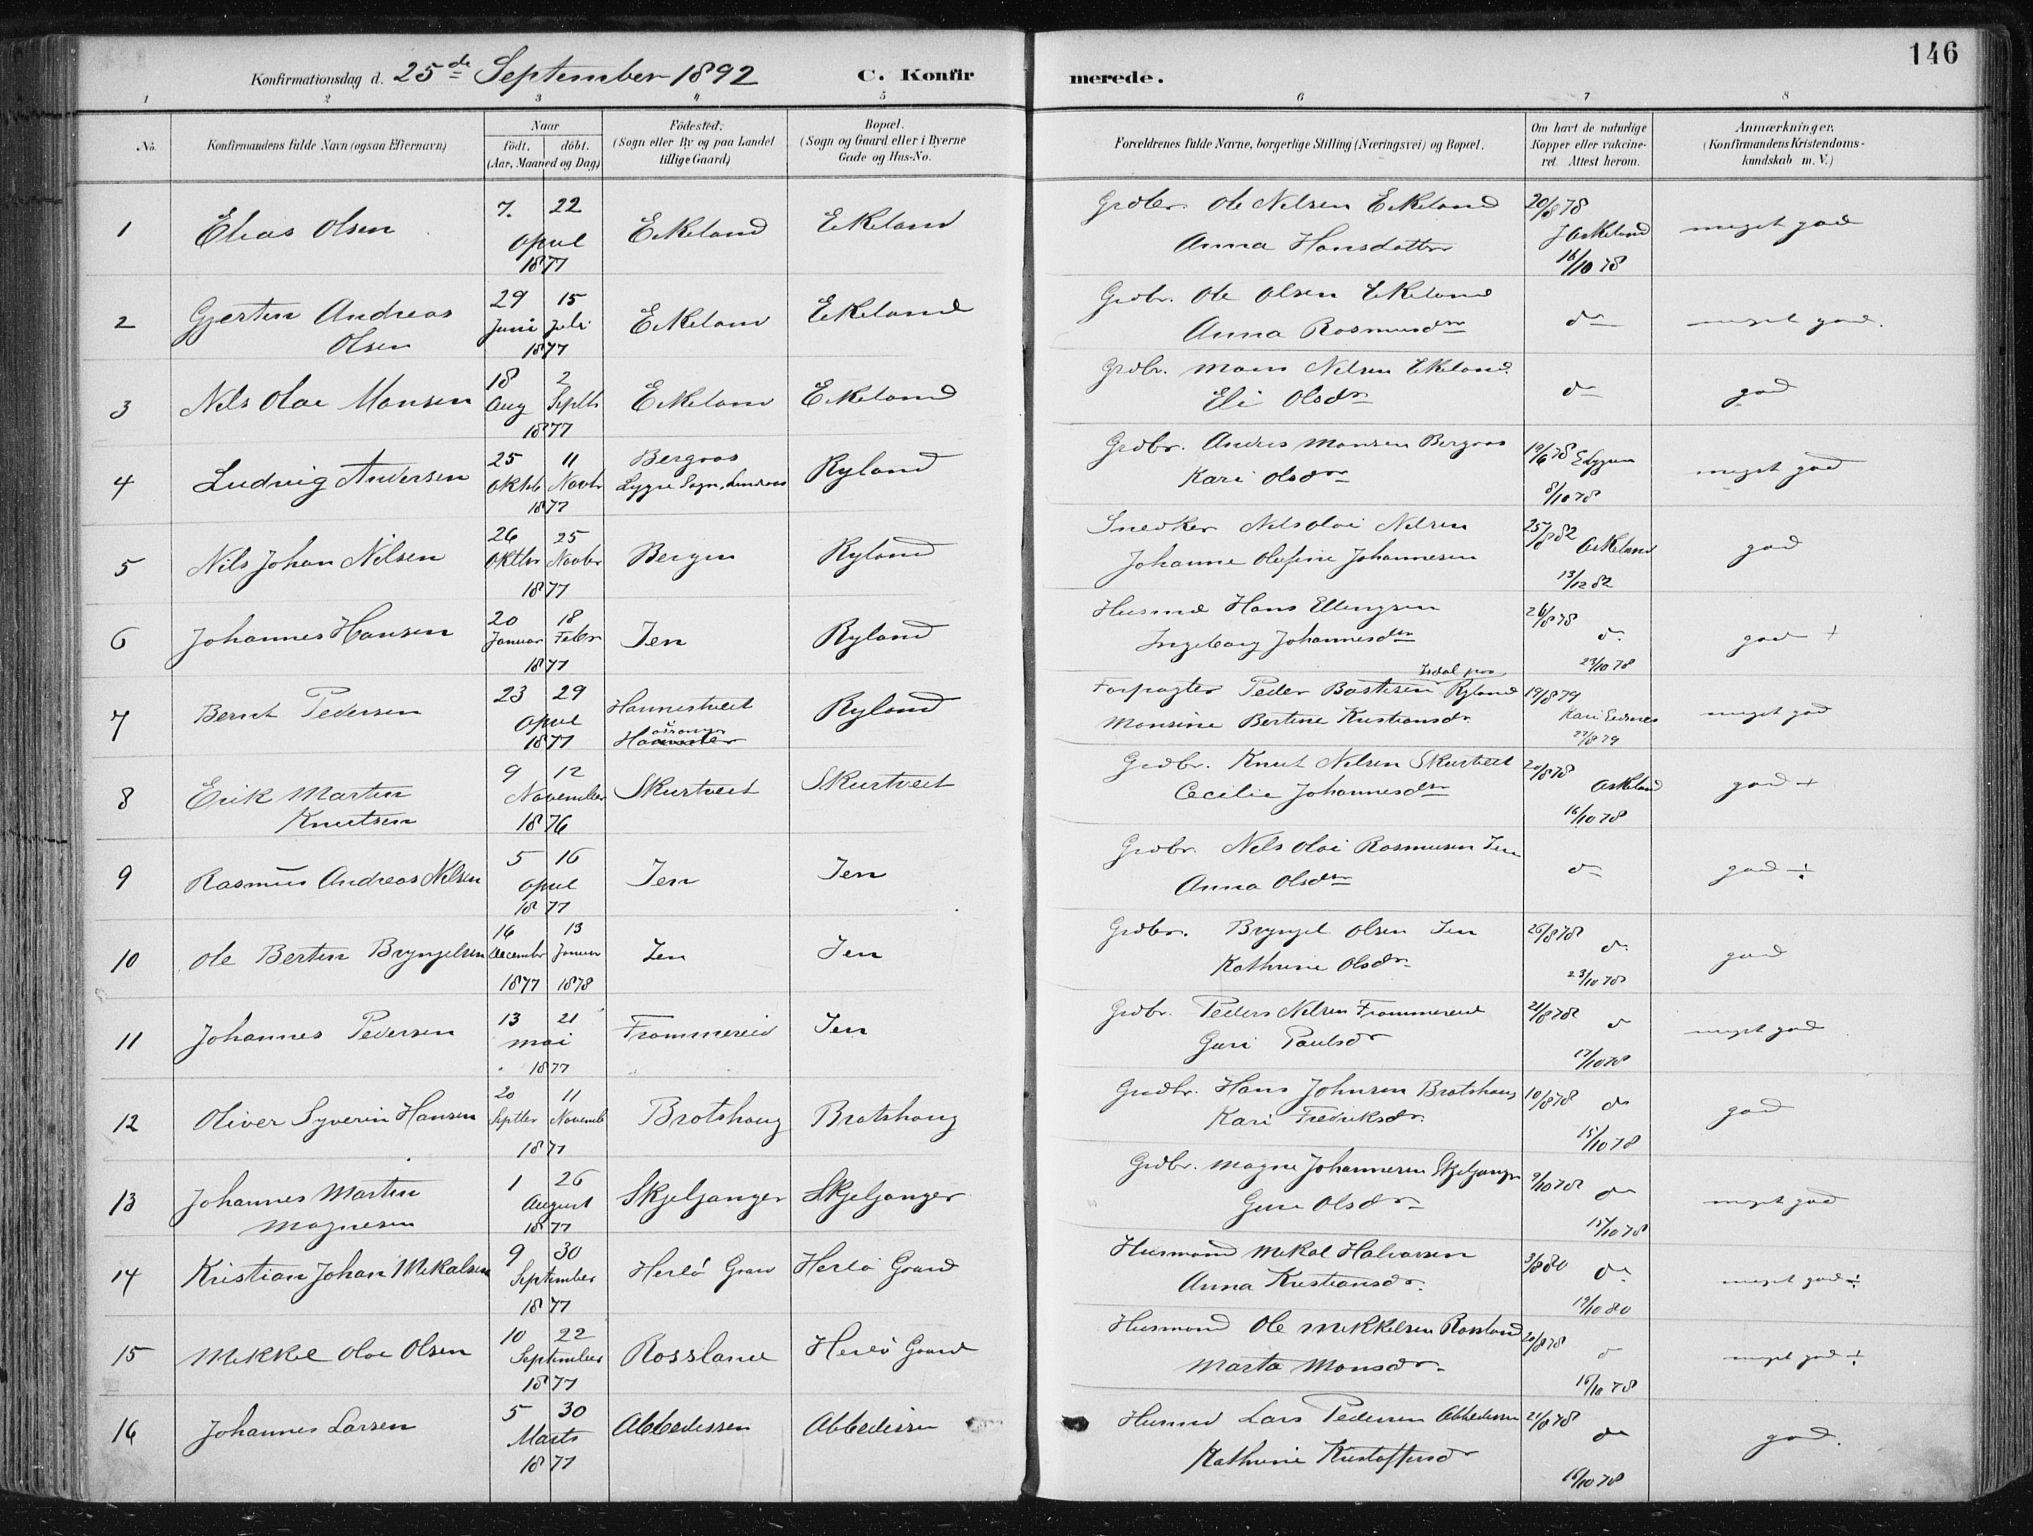 146
Konfirmationsdag d. 25de September 1892 C. Konfirmerede.
1 2 3 4 5 6 7 8
No. Konfirmandens fulde Navn (ogsaa Efternavn) Naar födt. döbt. (Aar, Maaned og Dag) Födested. (Sogn eller By og paa Landet tillige Gaard) Bopæl. (Sogn og Gaard eller i Byerne Gade og Hus-No. Forældrenes fulde Navne, borgerlige Stilling (Næringsvei) og Bopæl. Om havt de naturlige Kopper eller vakcineret. Attest herom. Anmærkninger. (Konfirmandens Kristendomskundskab m. V.)
1 Elias Olsen 7. 22 April 1877 Eikeland Eikeland Grdbr. Ole Nilsen Eikeland Anna Hansdatter 20/8 78 J Askeland 16/10 78 meget god
2 Gjertin Andreas Olsen 29 Juni 15 Juli 1877 Eikeland Eikeland Grdbr. Ole Olsen Eikeland Anna Rasmusdr do meget god.
3 Nils Olai Monsen 18 Aug 2 Septbr 1877 Eikeland Eikeland Grdbr. Mons Nilsen Eikeland Eli Olsdr do god
4 Ludvig Andersen 25 Oktbr 11 Novbr 1877 Bergaas Lygre Sogn, Lindaas Ryland Grdbr. Anders Monsen Bergaas Kari Olsdr 8/10 78 meget god
5 Nils Johan Nilsen 26 Oktbr 25 Novbr 1877 Bergen Ryland Snedker Nils Olai Nilsen Johanne Olufine Johannesen 25/8 82 Askeland 13/12 82 god
6 Johannes Hansen 20 Januar 18 Febr 1877 Io̶en Ryland Husmd Hans Ellingsen Ingeborg Johannesdr 26/8 78 do 23/10 78 god +
7 Bernt Pedersen 23 29 April 1877 Hannestveit Ryland Forpagter Peder Bastesen Ryland Monsine Bertine Kristiansdr 19/8 79 meget god
8 Erik Martin Knutsen 9 12 November 1876 Skurtveit Skurtveit Grdbr. Knut Nilsen Skurtveit Cecilie Johannesdr 20/8 78 Askeland 16/10 78 god +
9 Rasmus Andreas Nilsen 5 16 April 1877 Ien Ien Grdbr. Nils Olai Rasmusen Ien Anna Olsdr do god ÷
10 Ole Bertin Bryngelsen 16 December 1877 13 Januar 1878 Ien Ien Grdbr. Bryngel Olsen Ien Kathrine Olsdr 26/8 78 do 23/10 78 god
11 Johannes Pedersen 13 21 Mai 1877 Frommereid Ien Grdbr. Peders Nilsen Frommereid Guri Paulsdr 21/8 78 do 17/10 78 meget god
12 Oliver Syverin Hansen 20 Septbr 11 Novemb 1877 Brotshaug Brotshaug Grdbr. Hans Johnsen Brotshaug Kari Fredriksdr. 10/8 78 do 15/10 78 god
13 Johannes Martin Magnesen 1 26 August 1877 Skjeljanger Skjeljanger Grdbr. Magne Johannesen Skjeljanger Guri Olsdr 9/10 78 do 15/10 78 meget god
14 Kristian Johan Mikalsen 9 30 September 1877 Herlö Gaard Herlö Gaard Husmand Mikal Halvorsen Anna Kristiansdr. 3/8 80 do 19/10 80 meget god ÷
15 Mikkel Olai Olsen 10 22 September 1877 Rossland Herlö Gaard Husmand Ole Mikkelsen Rossland Marta Monsdr. 20/8 78 do 16/10 78 meget god ÷
16 Johannes Larsen 5 30 Marts 1877 Abbedissen Abbedissen Husmd Lars Pedersen Abbedissen Kathrine Kristoffersdr 21/8 78 do 16/10 78 god.